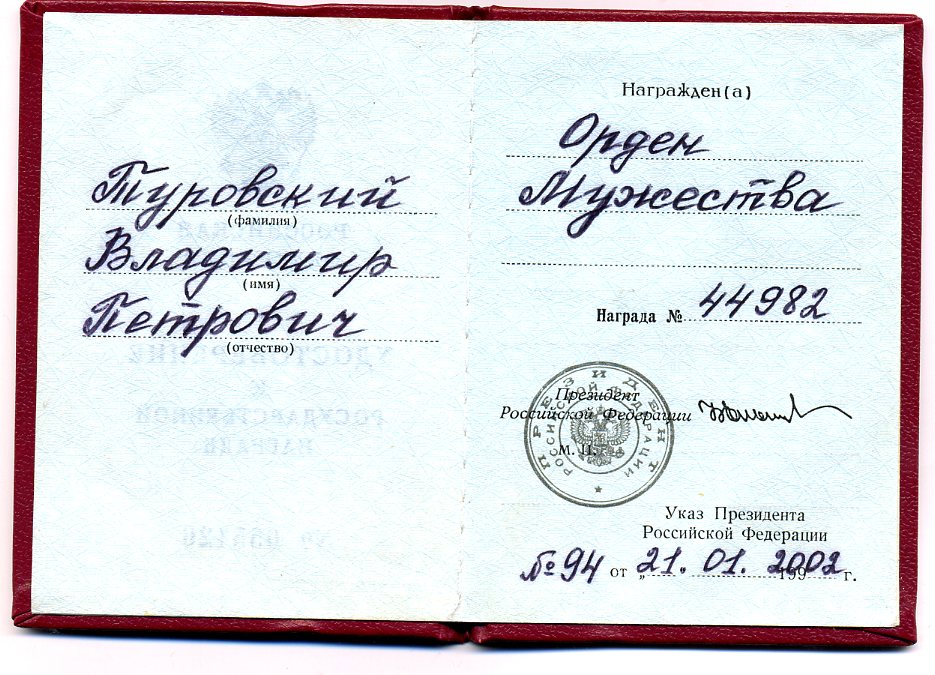 Туровский
(фамилия)
Владимир
(имя)
Петрович
(отчество)
Награжден(а)
Орден
Мужества
Награда № 44982
Президент
Российской Федерации
ПРЕЗИДЕНТ
РОССИЙСКОЙ ФЕДЕРАЦИИ
М. П.
Указ Президента
Российской Федерации
№ 94 от „21“ 01. 2002 г.